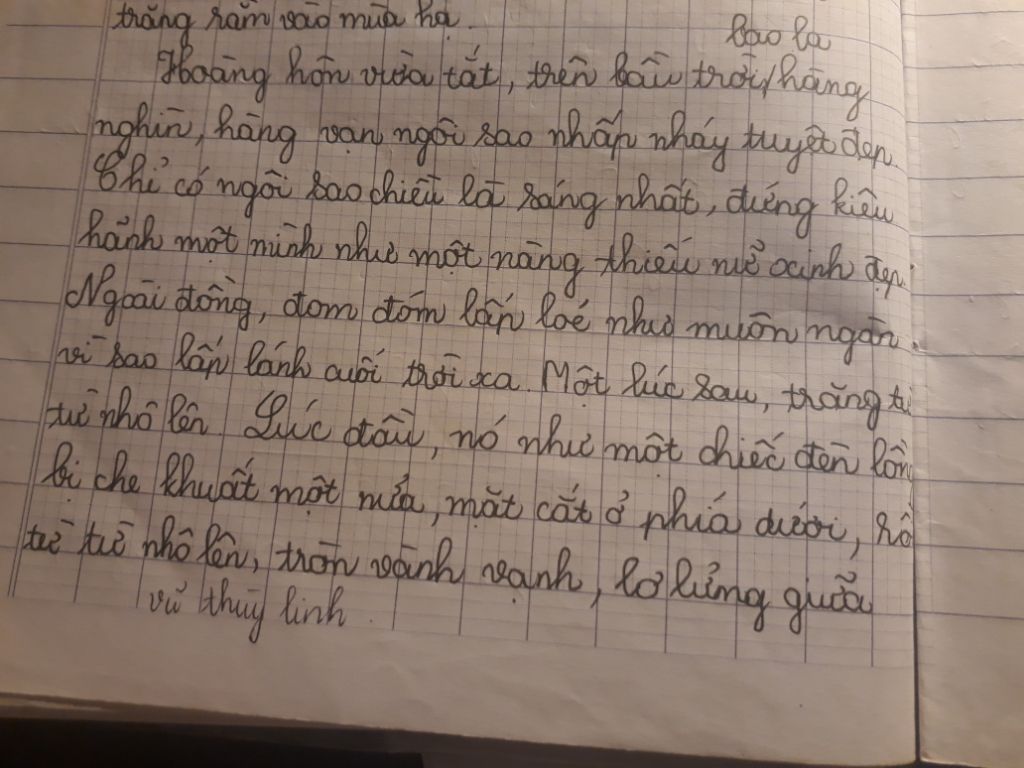 trăng rằm vào mùa hạ.
bao la
Hoàng hôn vừa tắt, trên bầu trời/hàng
nghìn, hàng vạn ngôi sao nhấp nháy tuyệt đẹp.
Chỉ có ngôi sao chiều là sáng nhất, đứng kiêu
hảnh một mình như một nàng thiếu nử xinh đẹp.
Ngoài đồng, đom đóm lấp loé như muôn ngàn
vì sao lấp lánh cuối trời xa. Một lúc sau, trăng từ
từ nhô lên. Lúc đầu, nó như một chiếc đèn lồng
bị che khuất một nửa, mặt cắt ở phía dưới, rồi
từ từ nhô lên, tròn vành vạnh, lơ lửng giữa
vử thùy linh.